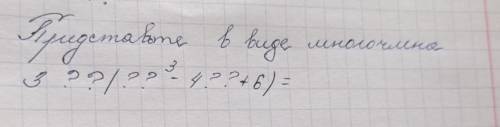 Представьте в виде многочлена
3 ??(??³ - 4??+6)=